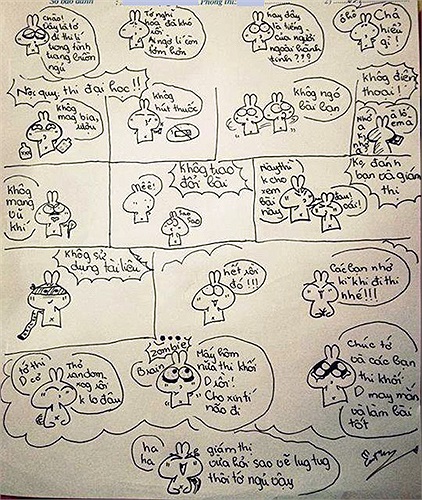 Số báo danh
Phòng thi:
chào!
Đây là tớ
đi thi lí
trong tình
trạng buồn
ngủ
Tớ nghĩ
hoá đã khó
rồi
K ngờ lí còn
lởm hơn
hay đây
là tiếng
của người
ngoài hành
tinh ???
Chả
hiểu
gì !
Nội quy thi đại học !!
khôg
mag bia,
rượu
khôg
hút thuốc
khôg ngó
bài bạn
khôg điện
thoại !
Khôg
mang
vũ
khí
khôg trao
đổi bài
êê!
sao
sao
Này thì
k cho
xem
bài
này
đau!
oái!
Ko đánh
bạn và giám
thi
khôg sử
dụng tài liệu
hết rồi
đó !!!
Các bạn nhớ
kĩ khi đi thi
nhé!!!
tớ thi
D cơ
Thỏ
random
xog rồi
k lo đâu
zombie
Brain
Mấy hôm
nữa thi khối
D rồi!
Cho xin tí
não đi
Chúc tớ
và các bạn
thi khối
D may mắn
và làm bài
tốt
ha
ha
giám thi
vừa hỏi sao vẽ lug tug
thôi tớ ngủ vậy